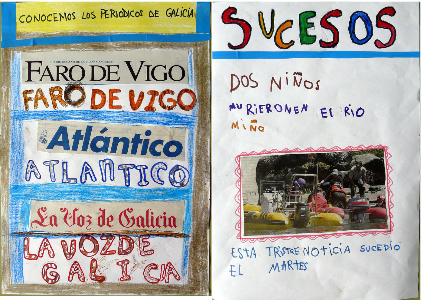 CONOCEMOS LOS PERIÓDICOS DE GALICIA
FARO DE VIGO
FARO DE VIGO
Atlántico
ATLANTICO
La Voz de Galicia
LA VOZ DE
GALICIA
SUCESOS
DOS NIÑOS
MURIERON EN EL RIO
MIÑO
ESTA TRISTRE NOTICIA SUCEDIO
EL MARTES